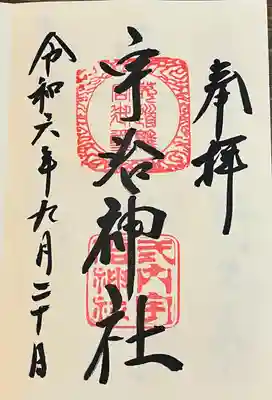 奉拝
宇治神社
令和六年九月二十日